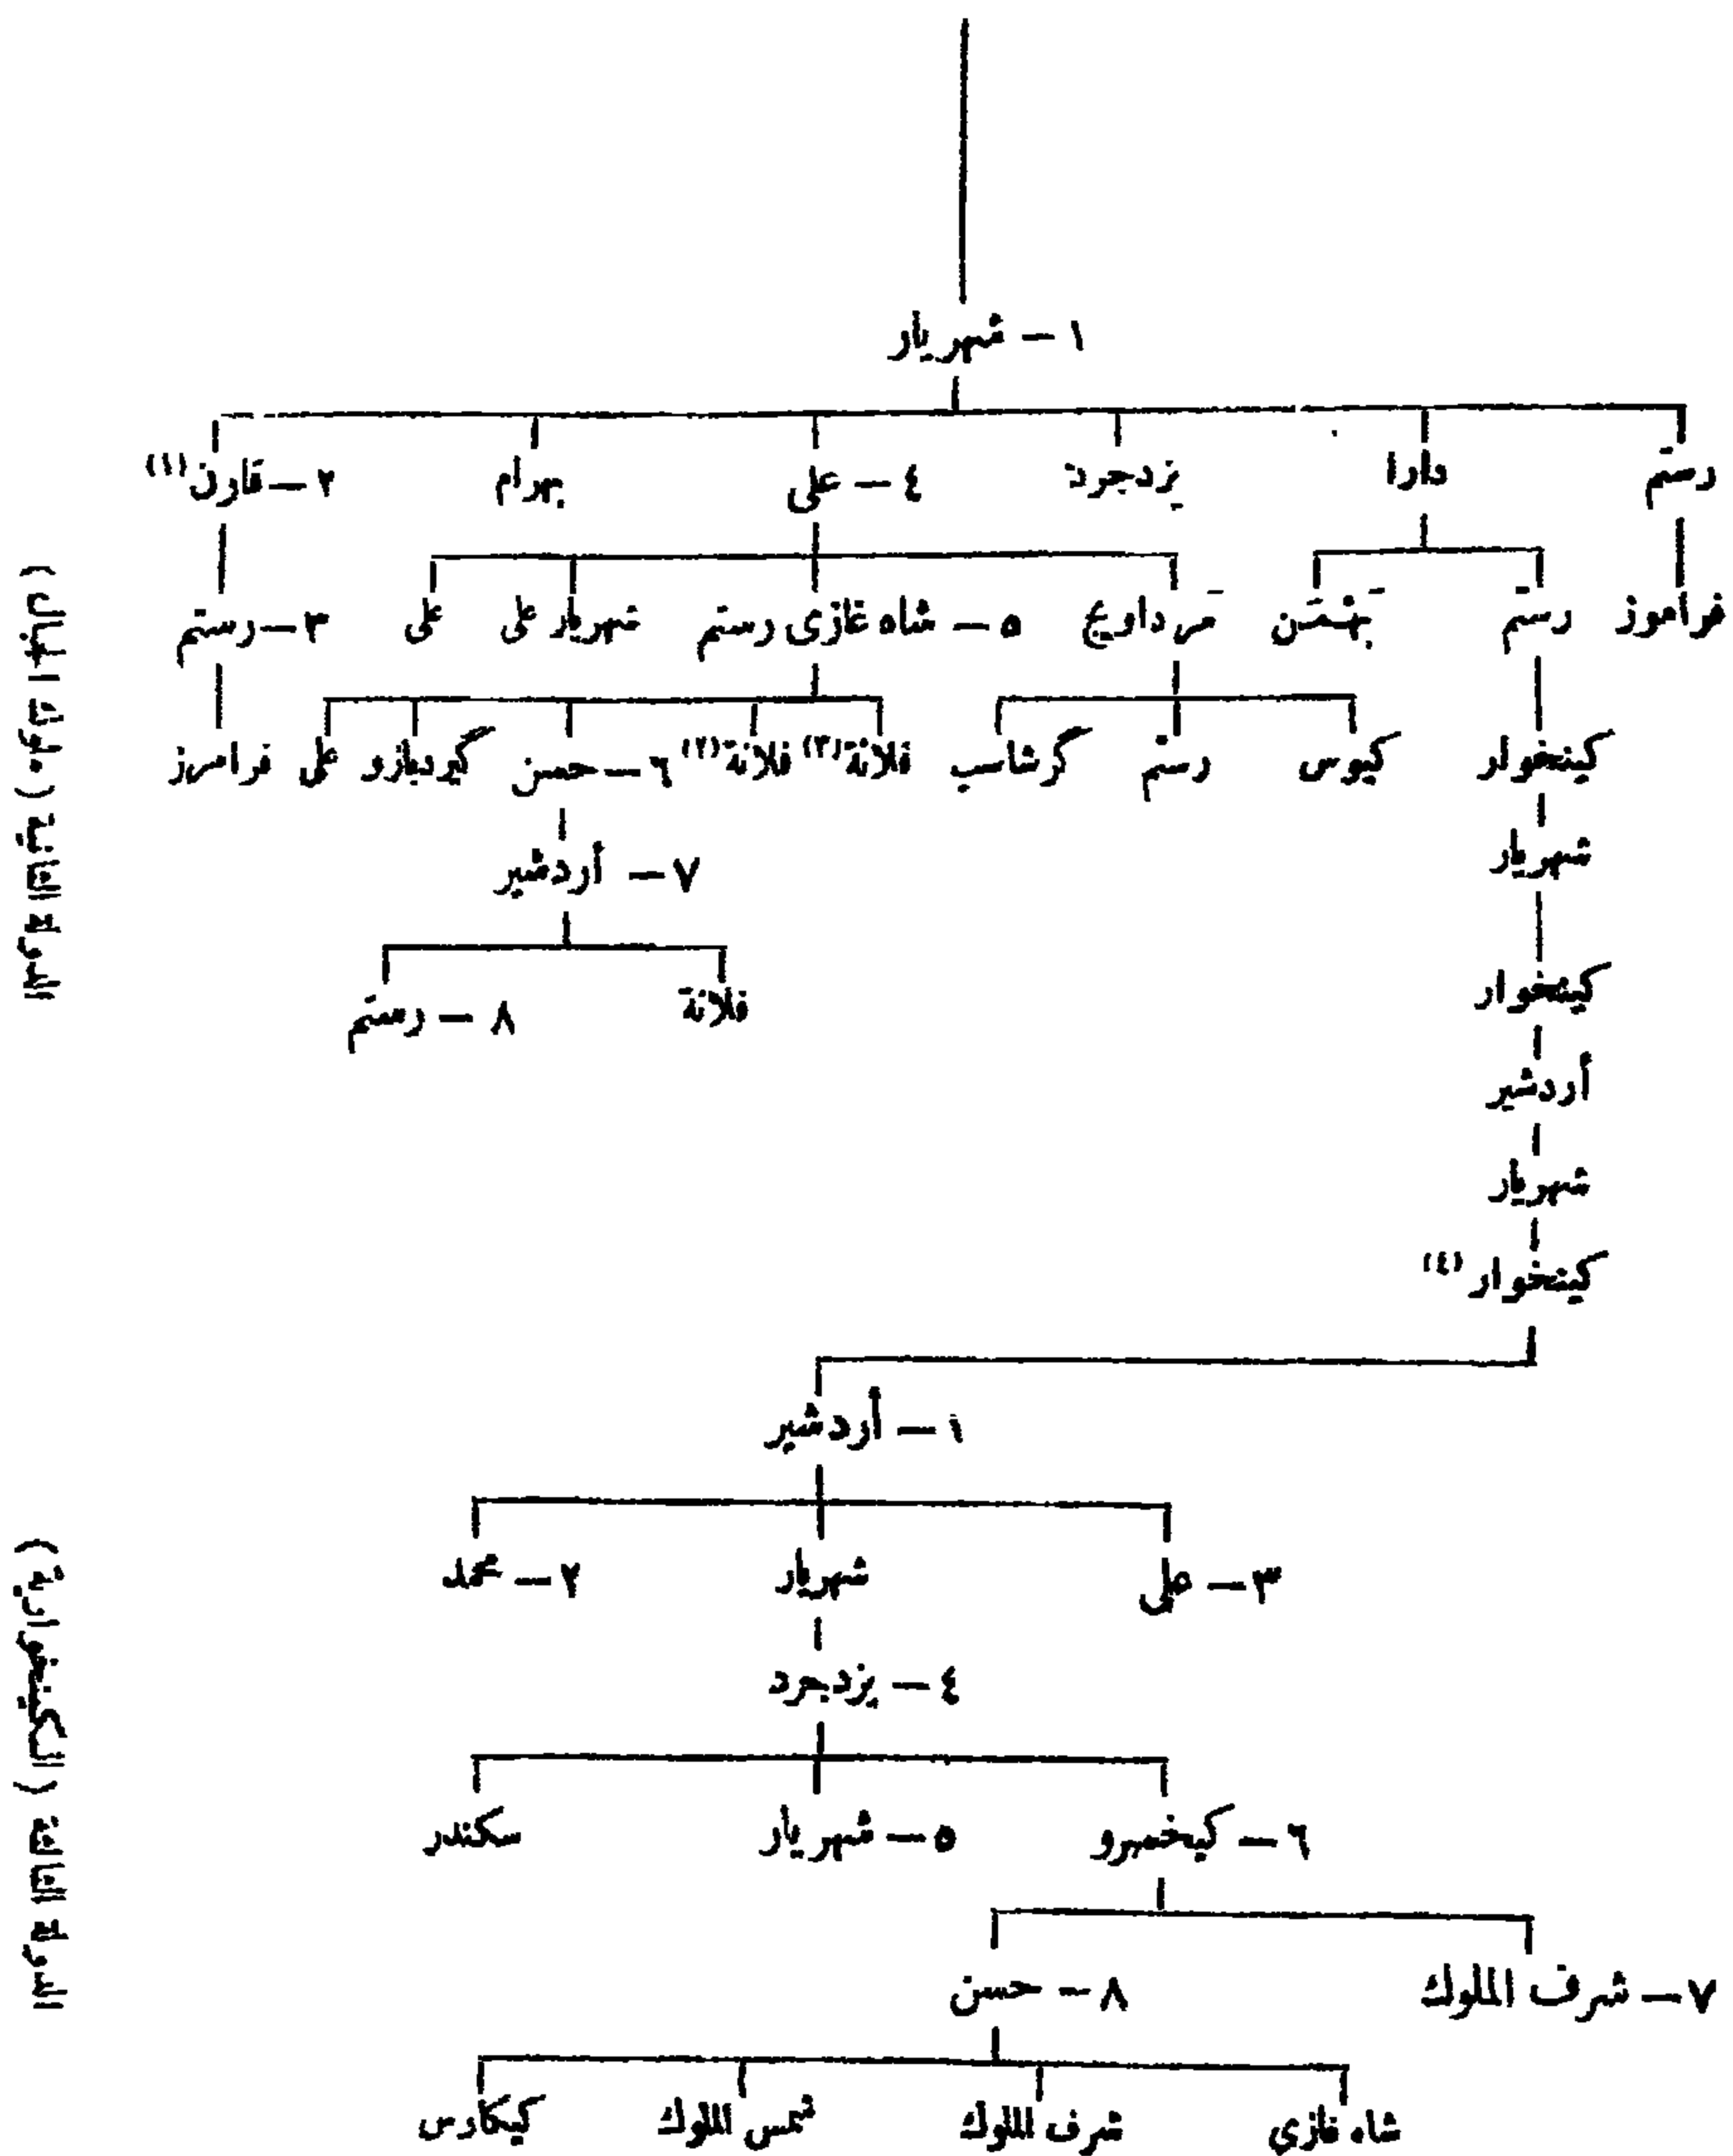 ١ – شهريار
رستم دارا يزدجرد ٤ – على بهرام ٢ – قارن (١)
فراموز رستم بَهْمَن مَرداويج ٥ – شاه غازى رستم شهريار على على ٣ – رستم
كينخوار كيوس رستم گرشاسب فلانة (٣) فلانة (٢) ٦ – حسن گردبازو على فرامرز
شهريار
٧ – أردشير
كينخوار
فلانة ٨ – رستم
أردشير
شهريار
كينخوار (٤)
١ – أردشير
٣ – على شهريار ٢ – محمد
٤ – يزدجرد
٦ – كيخسرو ٥ – شهريار سكندر
٧ – شرف الملوك ٨ – حسن
شاه غازى شرف الملوك شمس الملوك كيكاوس
الدولة الثانية (ملوك الجبال)
الدولة الثالثة (الكينخوارية)